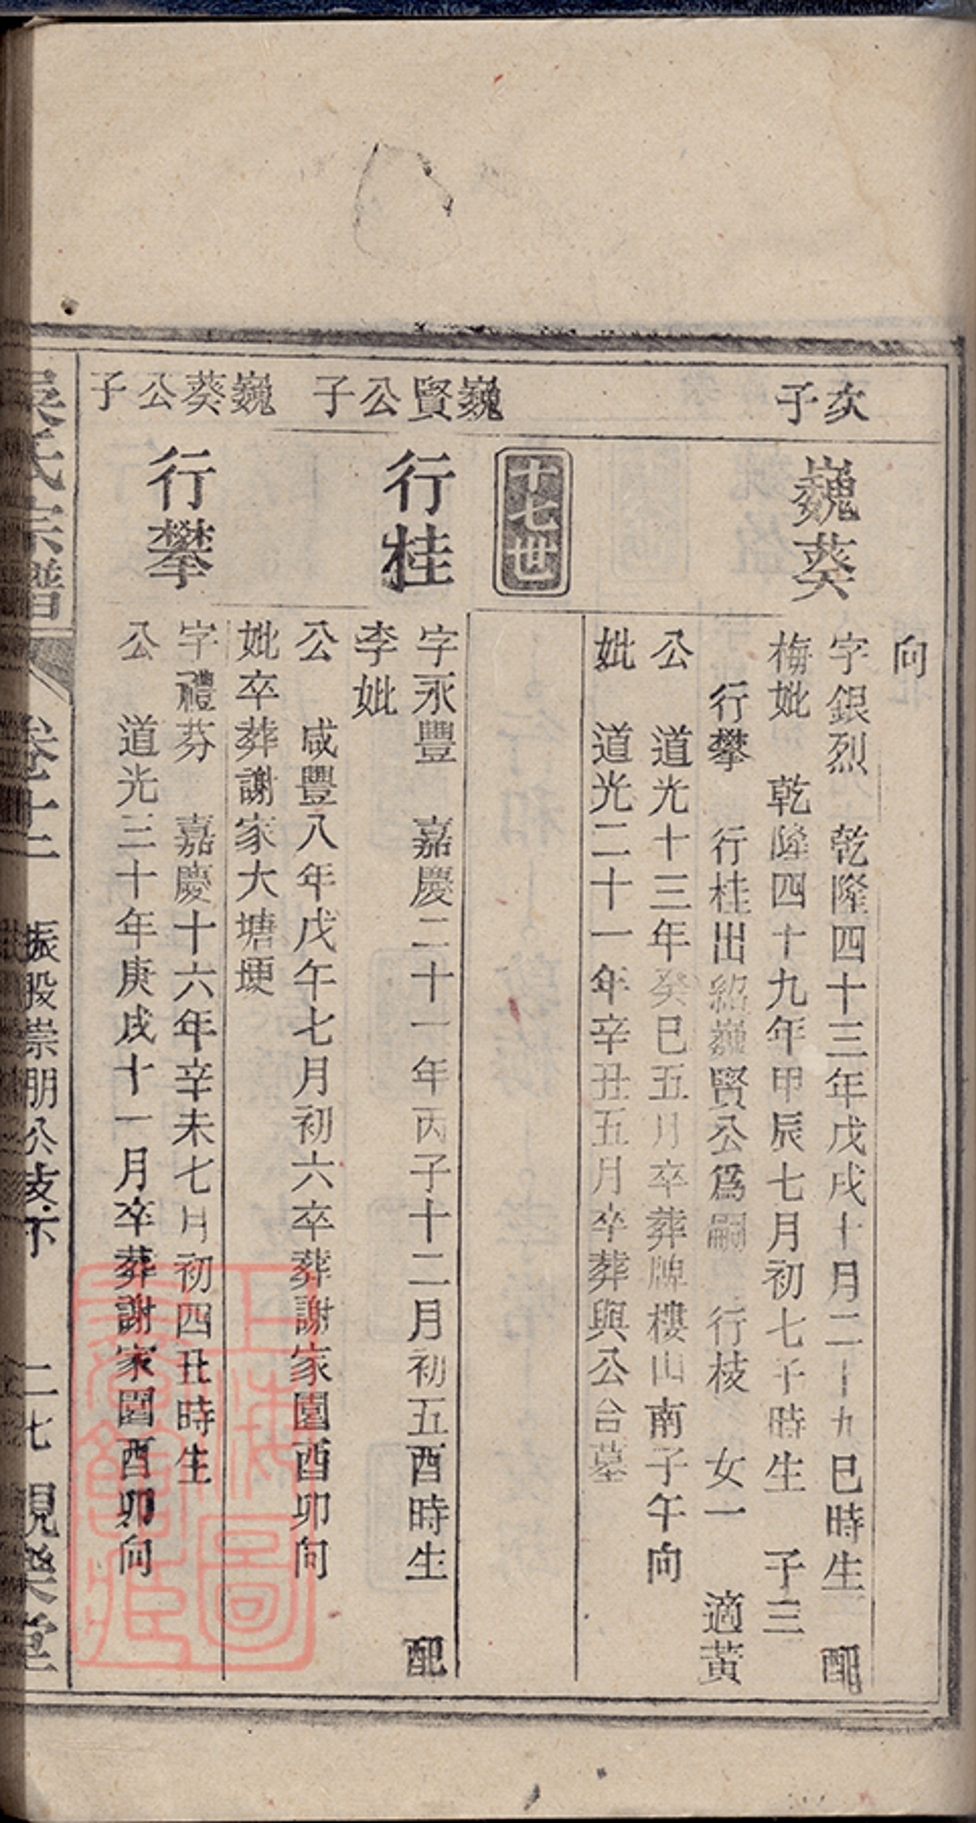 向
次子
巍葵
字銀烈　乾隆四十三年戊戌十月二十九巳時生　配
梅妣　乾隆四十九年甲辰七月初七子時生　子三
行攀　行桂出紹巍賢公爲嗣　行枝　女一　適黃
公　道光十三年癸巳五月卒葬牌樓山南子午向
妣　道光二十一年辛丑五月卒葬與公合墓
十七世
巍賢公子
行桂
字永豐　嘉慶二十一年丙子十二月初五酉時生　配
李妣
公　咸豐八年戊午七月初六卒葬謝家園酉卯向
妣卒葬謝家大塘埂
巍葵公子
行攀
字禮芬　嘉慶十六年辛未七月初四丑時生
公　道光三十年庚戌十一月卒葬謝家園酉卯向
氏宗譜
卷十二
振股崇朋公支下
二七
上海圖書館藏